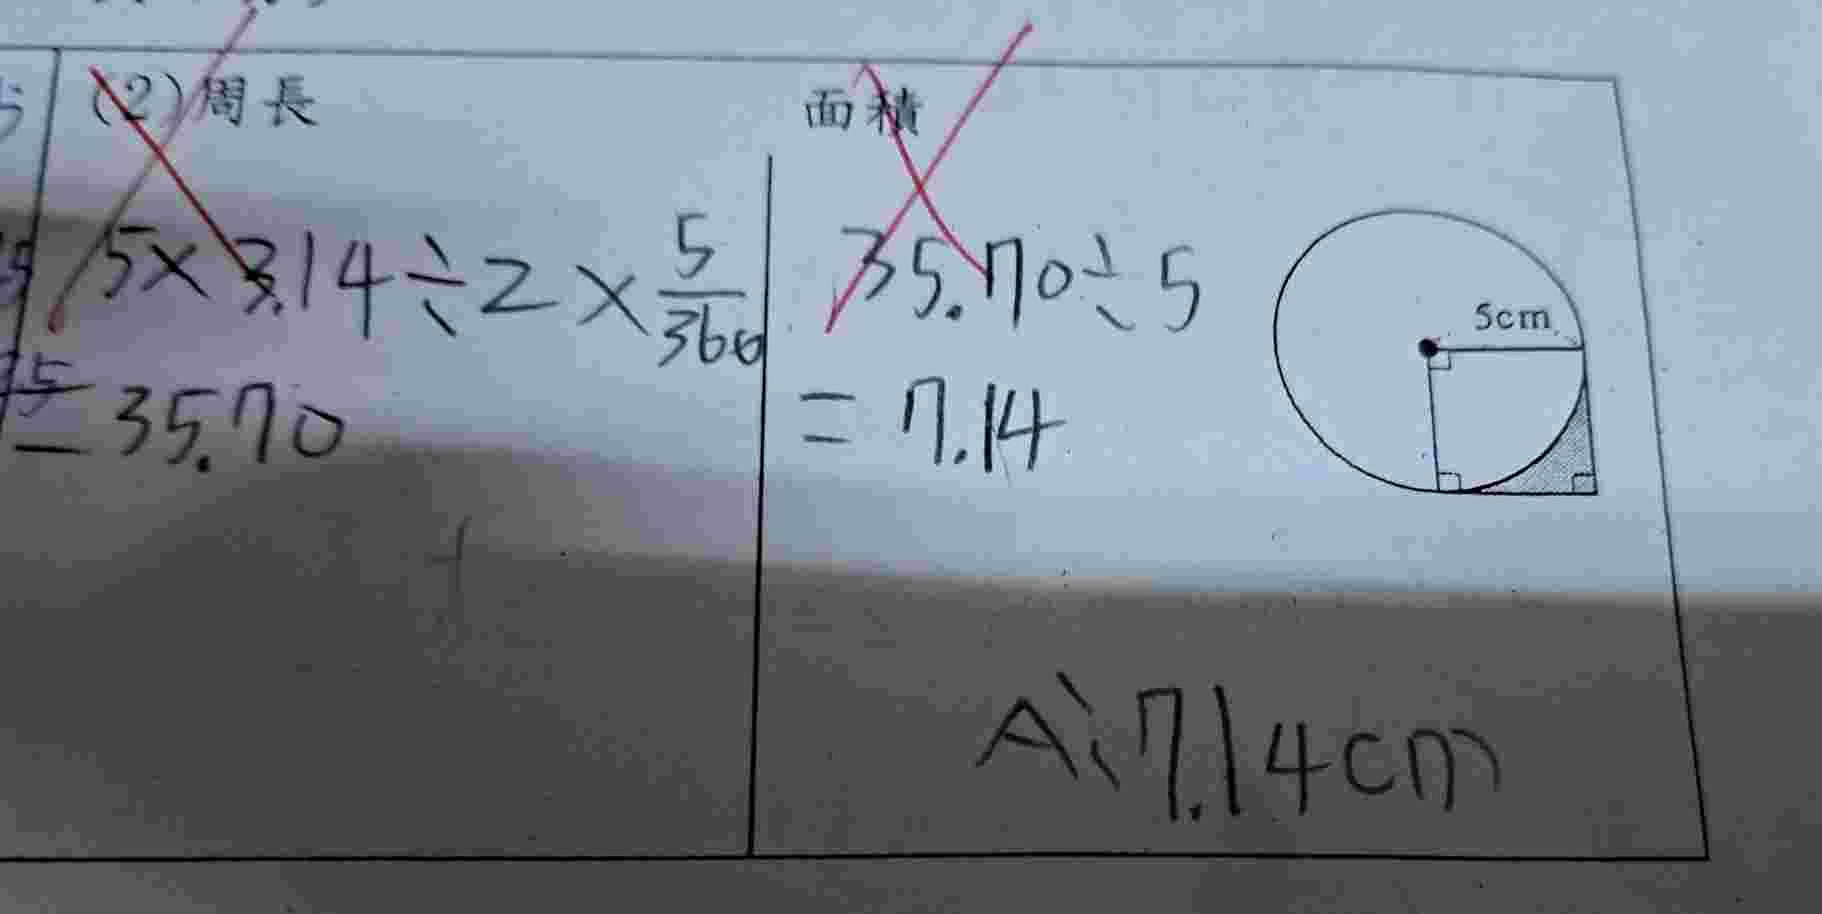 (2)周長
5×3.14÷2×5/360
=35.70
面積
35.70÷5
=7.14
5cm
A:7.14cm